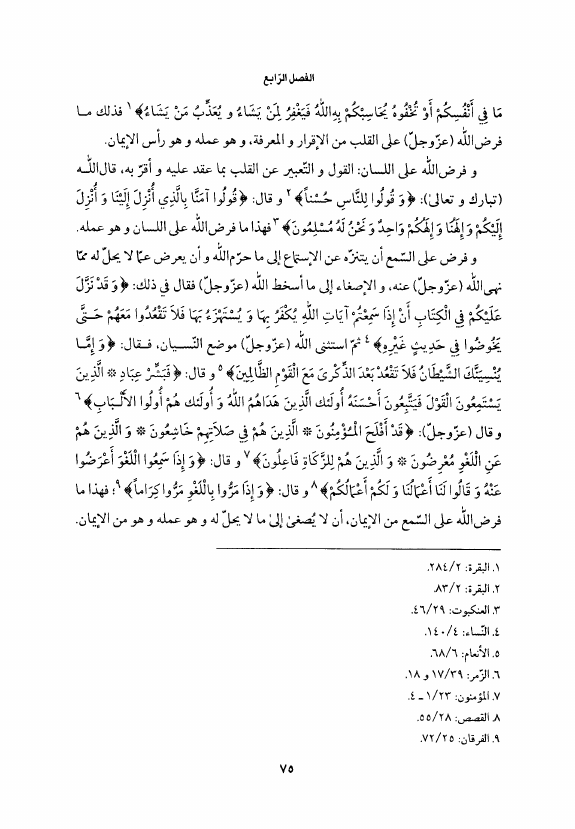 الفصل الرّابع
مَا فِي أَنْفُسِكُمْ أَوْ تُخْفُوهُ يُحَاسِبْكُمْ بِهِ اللهُ فَيَغْفِرُ لِمَنْ يَشَاءُ و يُعَذِّبُ مَنْ يَشَاءُ﴾١ فذلك مـا
فرض‌الله (عزّوجلّ) على القلب من الإقرار و المعرفة، و هو عمله و هو رأس الإيمان.
و فرض‌الله على اللسان: القول و التّعبير عن القلب بما عقد عليه و أقرّ به، قال‌اللـه
(تبارك و تعالىٰ): ﴿وَ قُولُوا لِلنَّاسِ حُسْناً﴾٢ و قال: ﴿قُولُوا آمَنَّا بِالَّذِي أُنْزِلَ إِلَيْنَا وَ أُنْزِلَ
إِلَيْكُمْ وَ إِلٰهُنَا وَ إِلٰهُكُمْ وَاحِدٌ وَ نَحْنُ لَهُ مُسْلِمُونَ﴾٣ فهذا ما فرض‌الله على اللسان و هو عمله.
و فرض على السّمع أن يتنزّه عن الإستماع إلى ما حرّم‌الله و أن يعرض عمّا لا يحلّ له ممّا
نهى‌الله (عزّوجلّ) عنه، و الإصغاء إلى ما أسخط الله (عزّوجلّ) فقال في ذلك: ﴿وَ قَدْ نَزَّلَ
عَلَيْكُمْ فِي الْكِتَابِ أَنْ إِذَا سَمِعْتُمْ آيَاتِ اللهِ يُكْفَرُ بِهَا وَ يُسْتَهْزَءُ بِهَا فَلاَ تَقْعُدُوا مَعَهُمْ حَـتَّى
يَخُوضُوا فِي حَدِيثٍ غَيْرِهِ﴾٤ ثمّ استثنى الله (عزّوجلّ) موضع النّسـيان، فـقال: ﴿وَ إِمَّـا
يُنْسِيَنَّكَ الشَّيْطَانُ فَلاَ تَقْعُدْ بَعْدَ الذِّكْرىٰ مَعَ الْقَوْمِ الظَّالِمِينَ﴾٥ و قال: ﴿فَبَشِّرْ عِبَادِ * الَّذِينَ
يَسْتَمِعُونَ الْقَوْلَ فَيَتَّبِعُونَ أَحْسَنَهُ أُولَئِكَ الَّذِينَ هَدَاهُمُ اللهُ وَ أُولَئِكَ هُمْ أُولُوا الْأَلْـبَابِ﴾٦
و قال (عزّوجلّ): ﴿قَدْ أَفْلَحَ الْمُـؤْمِنُونَ * الَّذِينَ هُمْ فِي صَلاَتِهِمْ خَاشِعُونَ * وَ الَّذِينَ هُمْ
عَنِ اللَّغْوِ مُعْرِضُونَ * وَ الَّذِينَ هُمْ لِلزَّكَاةِ فَاعِلُونَ﴾٧ و قال: ﴿وَ إِذَا سَمِعُوا اللَّغْوَ أَعْرَضُوا
عَنْهُ وَ قَالُوا لَنَا أَعْمَالُنَا وَ لَكُمْ أَعْمَالُكُمْ﴾٨ و قال: ﴿وَ إِذَا مَرُّوا بِاللَّغْوِ مَرُّوا كِرَاماً﴾٩؛ فهذا ما
فرض‌الله على السّمع من الإيمان، أن لا يُصغىٰ إلىٰ ما لا يحلّ له و هو عمله و هو من الإيمان.
١. البقرة: ٢٨٤/٢.
٢. البقرة: ٨٣/٢.
٣. العنكبوت: ٤٦/٢٩.
٤. النّساء: ١٤٠/٤.
٥. الأنعام: ٦٨/٦.
٦. الزّمر: ١٧/٣٩ و ١٨.
٧. المؤمنون: ١/٢٣ ـ ٤.
٨. القصص: ٥٥/٢٨.
٩. الفرقان: ٧٢/٢٥.
٧٥